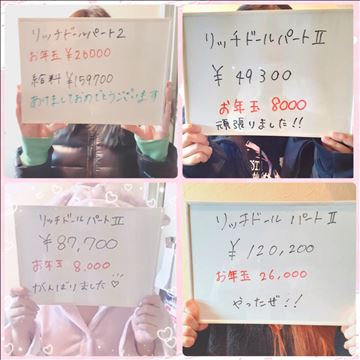 リッチドールパート2
お年玉 ¥26000
給料 ¥159700
あけましておめでとうございます
リッチドールパートⅡ
¥ 49300
お年玉 8000
頑張りました!!
リッチドールパートⅡ
¥87,700
お年玉 8,000
がんばりました♡
リッチドール パートⅡ
¥ 120,200
お年玉 26,000
やったぜ!!